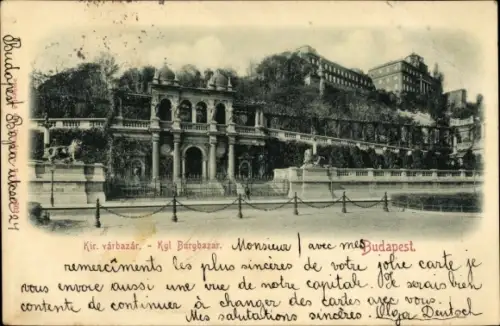 Budapest Bajza utca 24
Kir. várbazár. - Kgl Burgbazar.
Budapest.
Monsieur! avec mes
remerciments les plus sincères de votre jolie carte je
vous envoie aussi une vue de notre capitale. Je serais bien
contente de continuer à changer des cartes avec vous.
Mes salutations sincères Olga Deutsch